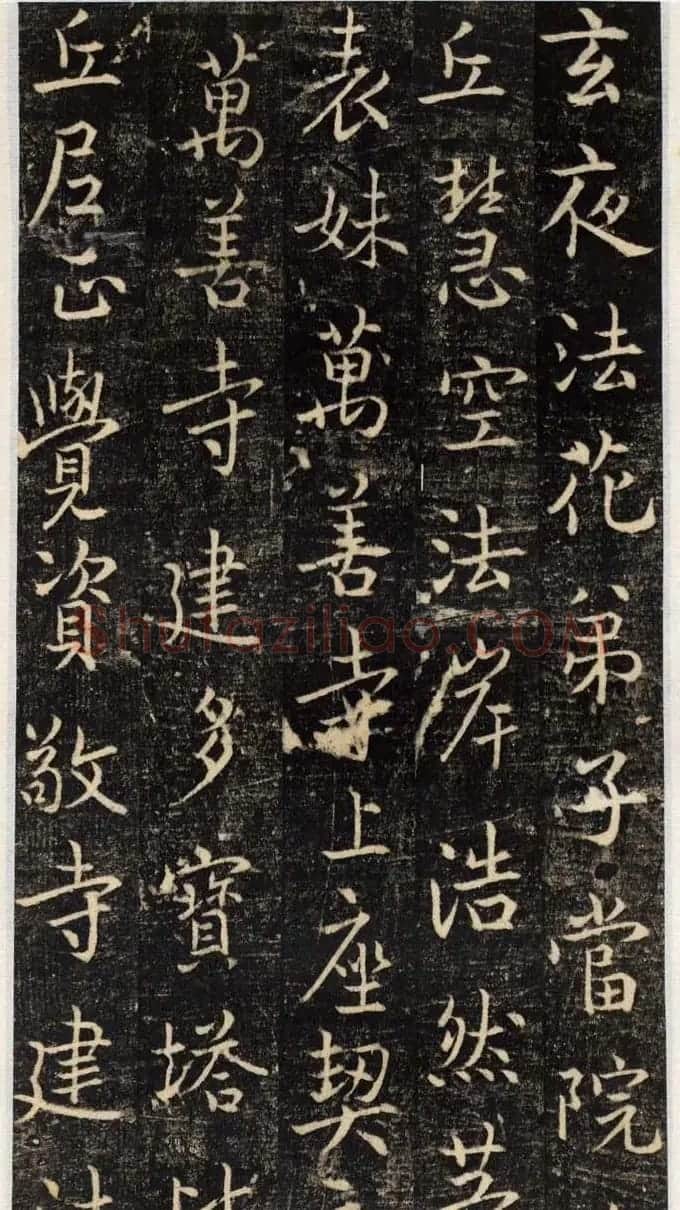 玄夜法花弟子當院
丘慧空法岸浩然等
表妹萬善寺上座契
萬善寺建多寶塔比
丘尼正覺資敬寺建法
Shufaziliao.COM